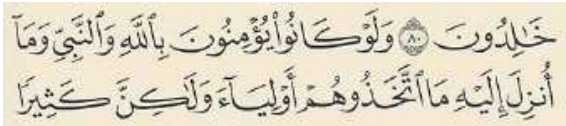 خَٰلِدُونَ ٨٠ وَلَوْ كَانُوا۟ يُؤْمِنُونَ بِٱللَّهِ وَٱلنَّبِىِّ وَمَآ
أُنزِلَ إِلَيْهِ مَا ٱتَّخَذُوهُمْ أَوْلِيَآءَ وَلَٰكِنَّ كَثِيرًا